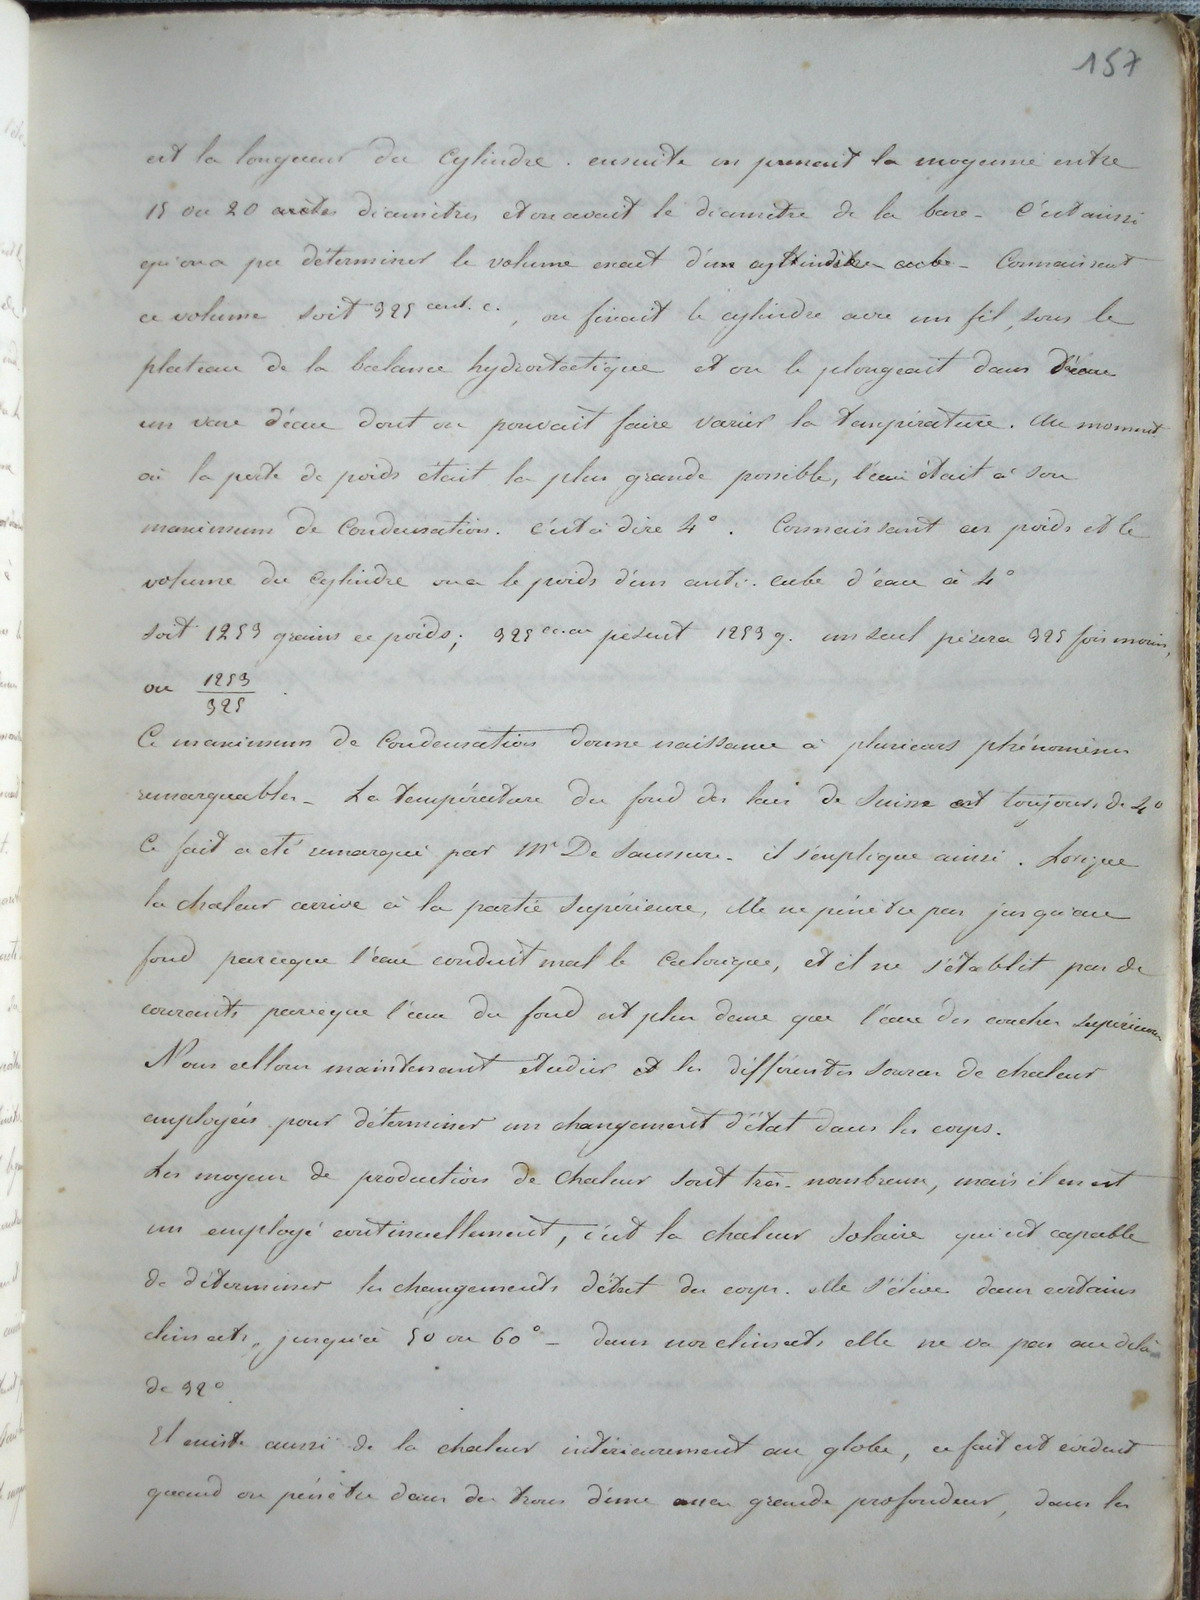 157
est la longueur du cylindre. ensuite on prenait la moyenne entre
15 ou 20 diamètres et on avait le diamètre de la base - C'est ainsi
qu'on a pu déterminer le volume exact d'un cylindre - Connaissant
ce volume soit 325 cent. c., on fixait le cylindre avec un fil, sous le
plateau de la balance hydrostatique et on le plongeait dans d'eau
un vase d'eau dont on pouvait faire varier la température. Au moment
où la perte de poids était la plus grande possible, l'eau était à son
maximum de Condensation. c'est à dire 4°. Connaissant ces poids et le
volume du cylindre on a le poids d'un centi. cube d'eau à 4°
soit 1253 grains ce poids; 325 pèsent 1253 g. un seul pèsera 325 fois moins,
ou 1253/325.
Ce maximum de Condensation donne naissance à plusieurs phénomènes
remarquables - La température du fond des lacs de Suisse est toujours de 4°
Ce fait a été remarqué par Mr De Saussure - il s'explique ainsi. Lorsque
la chaleur arrive à la partie supérieure, elle ne pénètre pas jusqu'au
fond parceque l'eau conduit mal le calorique, et il ne s'établit pas de
courants parceque l'eau du fond est plus dense que l'eau des couches supérieures
Nous allons maintenant etudier les différentes sources de chaleur
employées pour déterminer un changement d'état dans les corps.
Les moyens de production de chaleur sont très-nombreux, mais il en est
un employé continuellement, c'est la chaleur solaire qui est capable
de déterminer les changements d'état des corps. elle s'élève dans certains
climats, jusqu'à 50 ou 60° - dans nos climats elle ne va pas au delà
de 32°
Il existe aussi de la chaleur intérieurement au globe, ce fait est évident
quand on pénètre dans des trous d'une grande profondeur, dans les